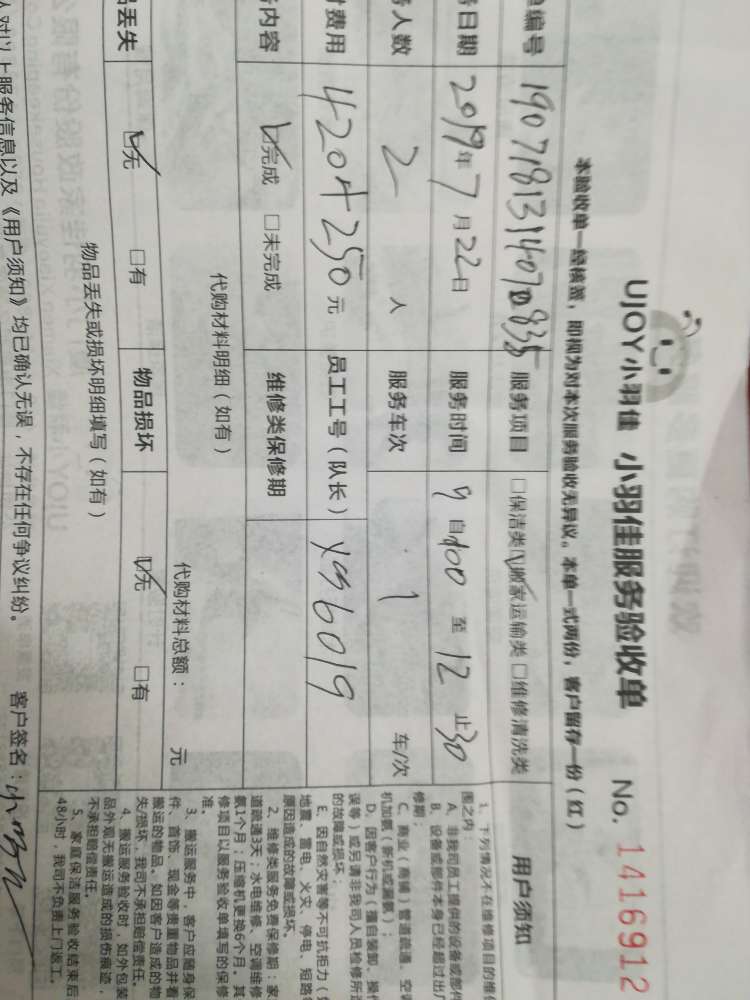 UJOY小羽佳 小羽佳服务验收单 No. 1416912
本验收单一经核签，即视为对本次服务验收无异议。本单一式两份，客户留存一份（红）
编号 服务项目 □保洁类 ☑搬家运输类 □维修清洗类
日期 2019年7月22日 服务时间 9 自 00 至 12 止 30
人数 2 人 服务车次 1 车/次
费用 420+250元 员工工号（队长） XS6019
内容 ☑完成 □未完成 维修类保修期
代购材料明细（如有） 代购材料总额： 元
丢失 ☑无 □有 物品损坏 ☑无 □有
物品丢失或损坏明细填写（如有）
对以上服务信息以及《用户须知》均已确认无误，不存在任何争议纠纷。 客户签名：
用户须知
1、下列情况不在维修项目的维
围之内：
A、非我司员工提供的设备或部件
B、设备或部件本身已经超过出厂
修期；
C、商业（商铺）管道疏通、空调
机加氨（新机或漏氨）；
D、因客户行为（擅自装卸、操作
误等）或另请非我司人员检修所造
的故障或损坏；
E、因自然灾害等不可抗拒力（
地震、雷电、火灾、停电、短路
原因造成的故障或损坏。
2、维修类服务免费保修期：家
道疏通3天；水电维修、空调维修
氨1个月；压缩机更换6个月。其
修项目以服务验收单填写的保修
准。
3、搬运服务中，客户应随身保
件、首饰、现金等贵重物品并看
搬运的物品。如因客户造成的物
失/损坏，我司不承担赔偿责任。
4、搬运服务验收时，如外包装
品外观无搬运造成的损伤痕迹，
不承担赔偿责任。
5、家庭保洁服务验收结束后
48小时，我司不负责上门返工。